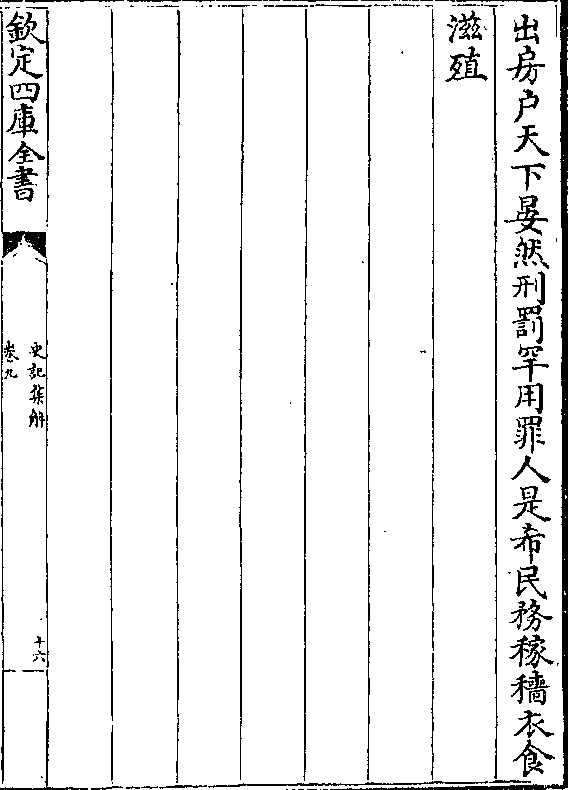 出房户天下晏然刑罰罕用罪人是希民務稼穡衣食
滋殖
欽定四庫全書
史記集解
卷九
十六